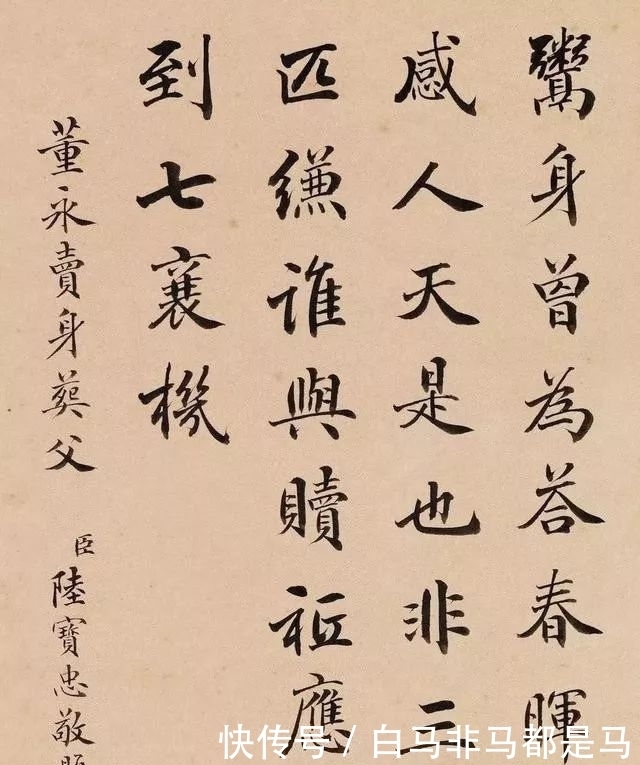 鬻身曾為荅春暉
感人天是也非三
匹縑誰與贖祗應
到七襄機
董永賣身葬父
臣陸寶忠敬
快传号 / 白马非马都是马